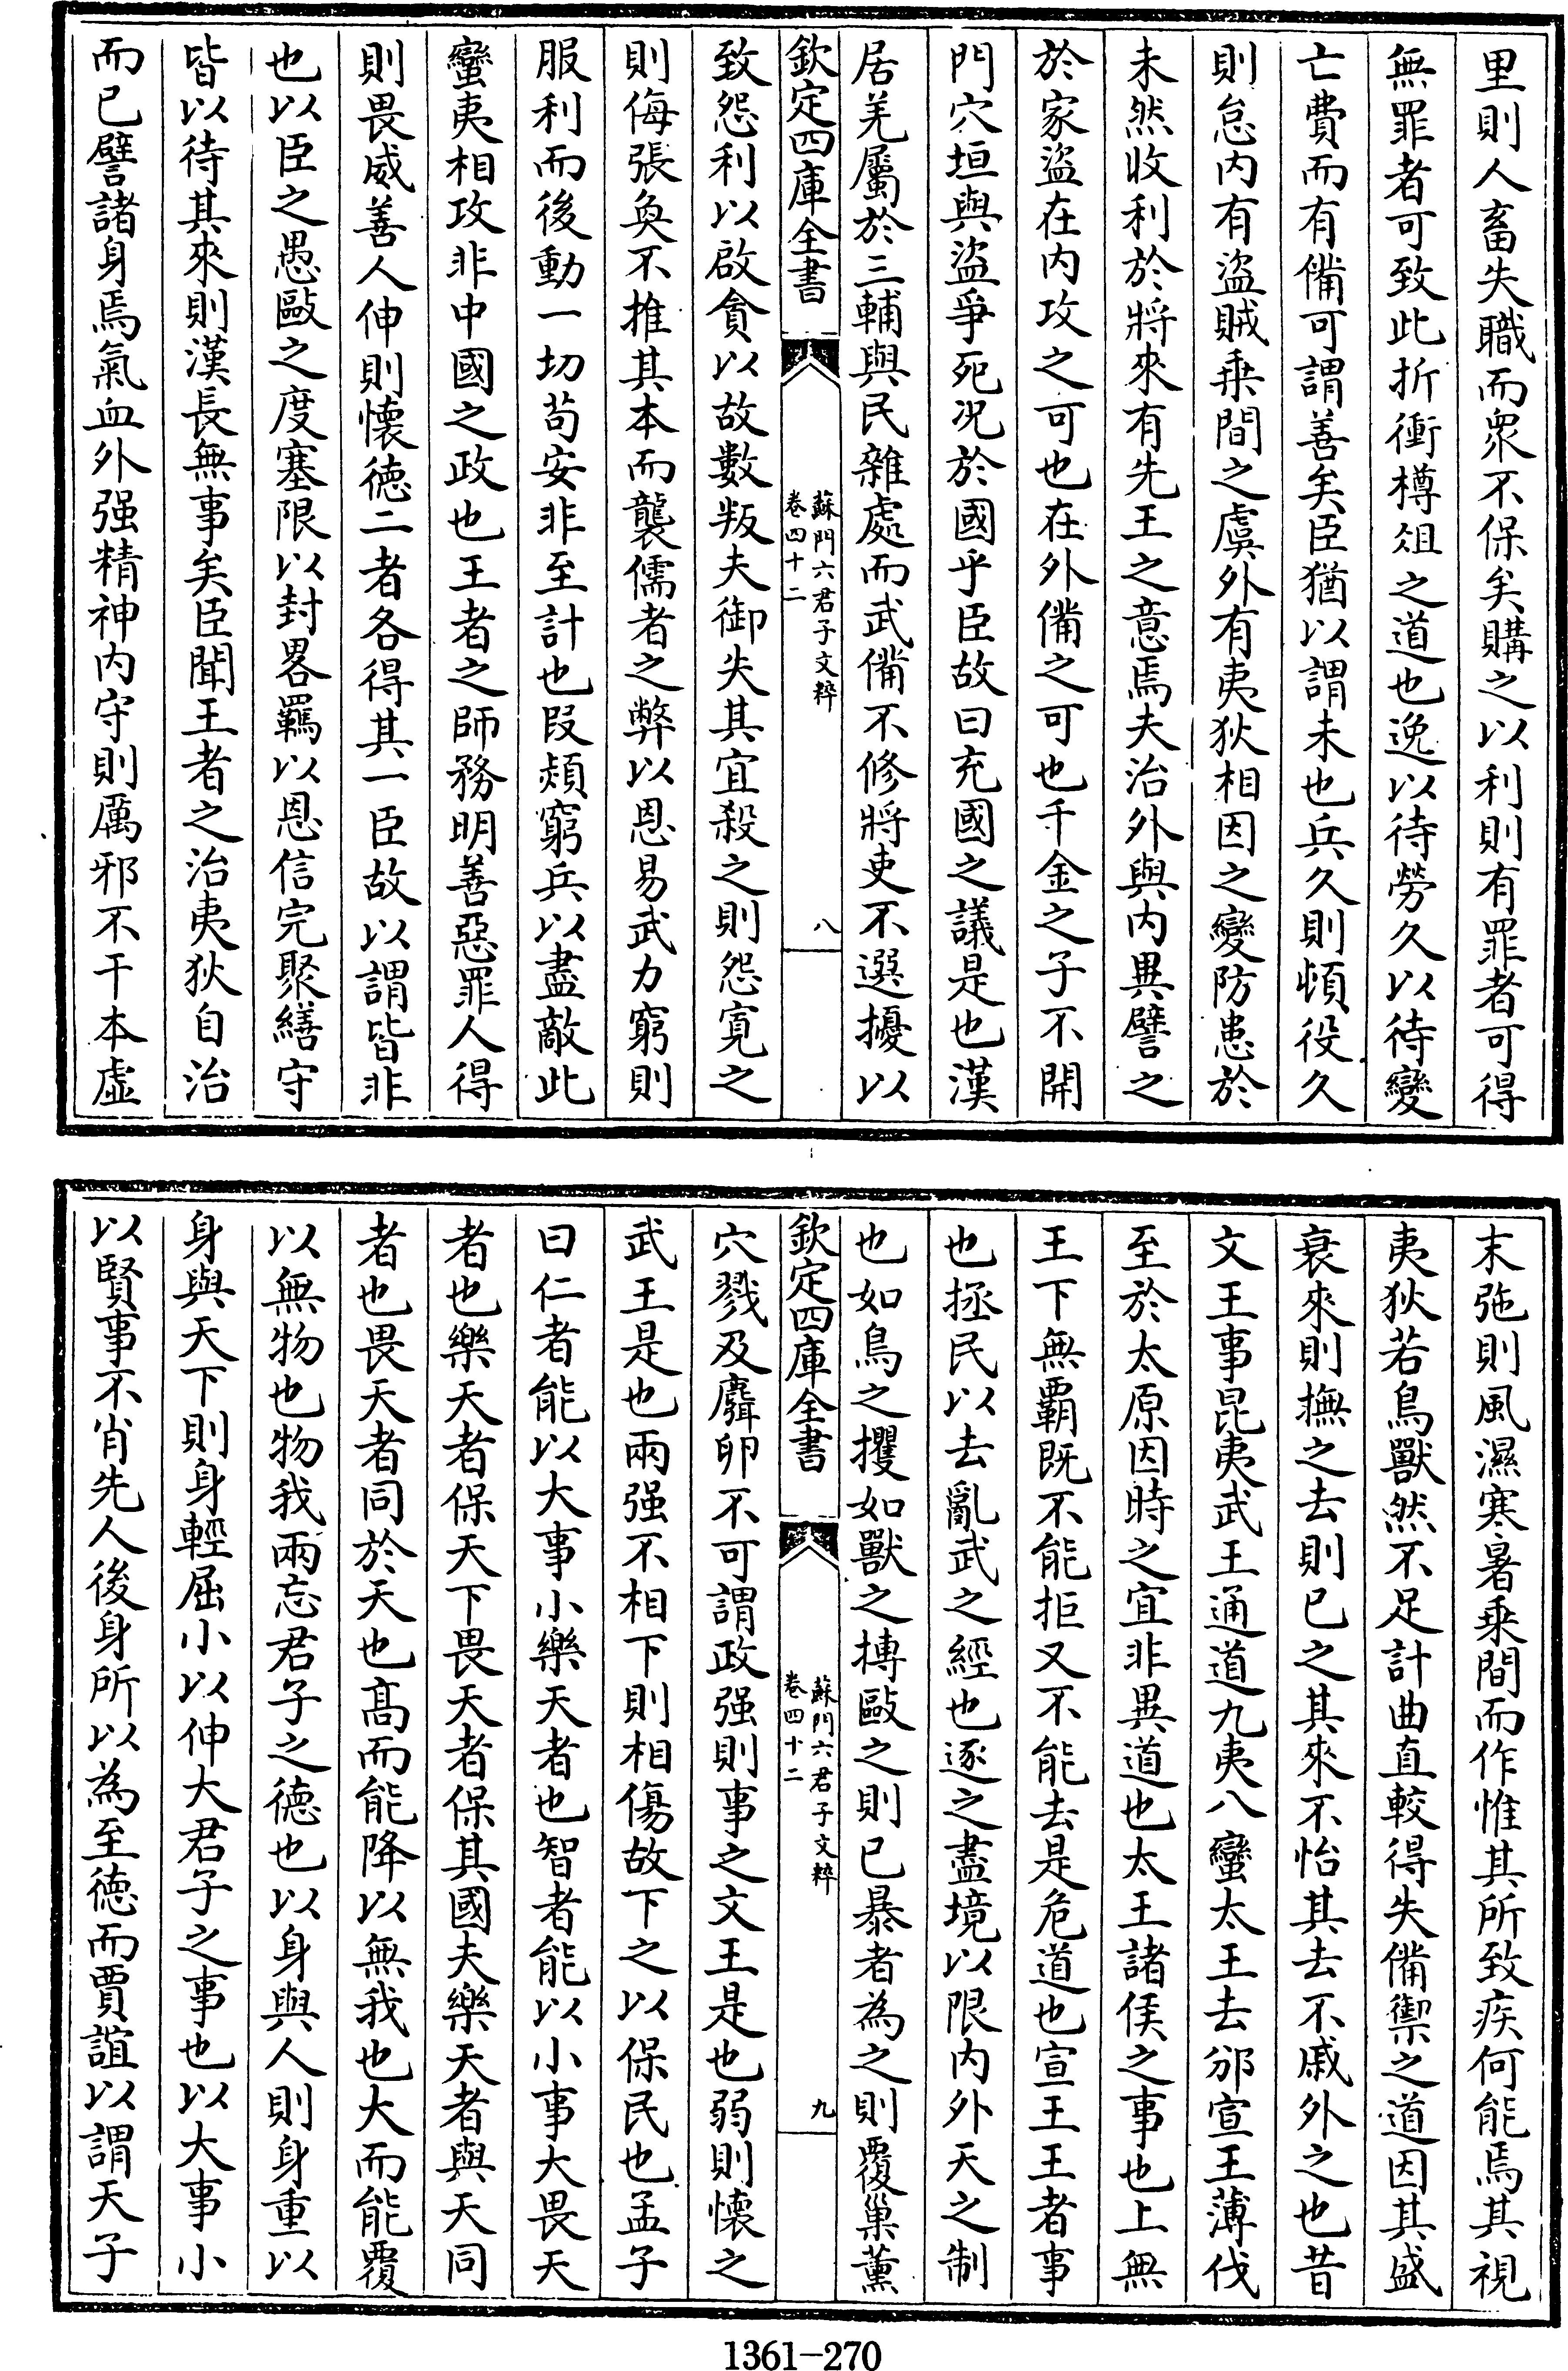 里則人畜失職而眾不保矣購之以利則有罪者可得
無罪者可致此折衝樽俎之道也逸以待勞久以待變
亡費而有備可謂善矣臣猶以謂未也兵久則頓役久
則怠内有盜賊乗間之虞外有夷狄相因之變防患於
未然收利於將來有先王之意焉夫治外與内異譬之
於家盜在内攻之可也在外備之可也千金之子不開
門穴垣與盜爭死况於國乎臣故曰充國之議是也漢
居羌屬於三輔與民雜處而武備不修將吏不選擾以
欽定四庫全書
蘇門六君子文粹
卷四十二
八
致怨利以啟貪以故數叛夫御失其宜殺之則怨寛之
則侮張奐不推其本而襲儒者之弊以恩易武力窮則
服利而後動一切茍安非至計也段熲窮兵以盡敵此
蠻夷相攻非中國之政也王者之師務明善惡罪人得
則畏威善人伸則懐徳二者各得其一臣故以謂皆非
也以臣之愚敺之度塞限以封畧羈以恩信完聚繕守
皆以待其來則漢長無事矣臣聞王者之治夷狄自治
而已譬諸身焉氣血外强精神内守則厲邪不干本虛
末弛則風濕寒暑乗間而作惟其所致疾何能焉其視
夷狄若鳥獸然不足計曲直較得失備禦之道因其盛
衰來則撫之去則已之其來不怡其去不戚外之也昔
文王事昆夷武王通道九夷八蠻太王去邠宣王薄伐
至於太原因時之宜非異道也太王諸侯之事也上無
王下無霸既不能拒又不能去是危道也宣王王者事
也拯民以去亂武之經也逐之盡境以限内外天之制
也如鳥之攫如獸之搏敺之則已暴者為之則覆巢薰
欽定四庫全書
蘇門六君子文粹
卷四十二
九
穴戮及麛卵不可謂政强則事之文王是也弱則懐之
武王是也兩强不相下則相傷故下之以保民也孟子
曰仁者能以大事小樂天者也智者能以小事大畏天
者也樂天者保天下畏天者保其國夫樂天者與天同
者也畏天者同於天也髙而能降以無我也大而能覆
以無物也物我兩忘君子之徳也以身與人則身重以
身與天下則身輕屈小以伸大君子之事也以大事小
以賢事不肖先人後身所以為至徳而賈誼以謂天子
1361-270